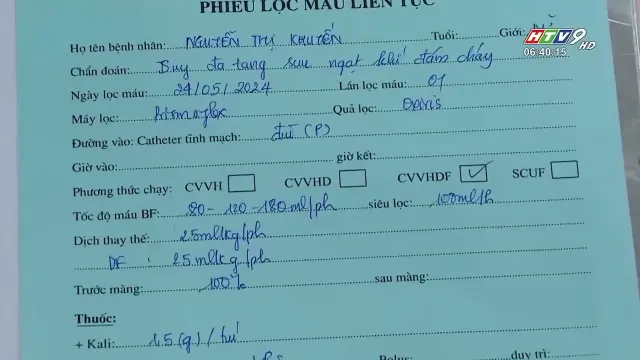 PHIẾU LỌC MÁU LIÊN TỤC
HTV9 HD
06:40:15
Họ tên bệnh nhân: NGUYỄN THỊ KHUYẾN Tuổi: Giới:
Chẩn đoán: Suy đa tạng sau ngạt khí đám cháy
Ngày lọc máu: 24/05/2024 Lần lọc máu: 01
Máy lọc: Prismaflex Quả lọc: Oxiris
Đường vào: Catheter tĩnh mạch: đùi (P)
Giờ vào: giờ kết:
Phương thức chạy: CVVH CVVHD CVVHDF ✓ SCUF
Tốc độ máu BF: 80 - 120 - 180 ml/ph siêu lọc: 100ml/h
Dịch thay thế: 25ml/kg/ph
DF : 25ml/kg/ph
Trước màng: 100% sau màng:
Thuốc:
+ Kali: 15(g)/túi
duy trì: